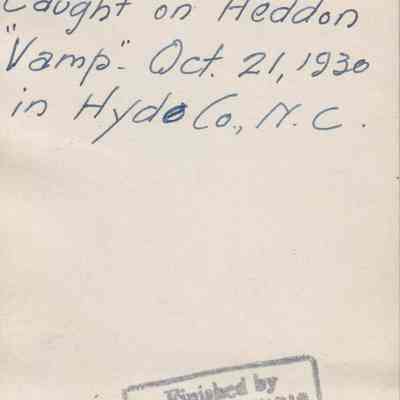 Caught on Heddon
"Vamp". Oct. 21, 1930
in Hyde Co., N. C.
Finished by